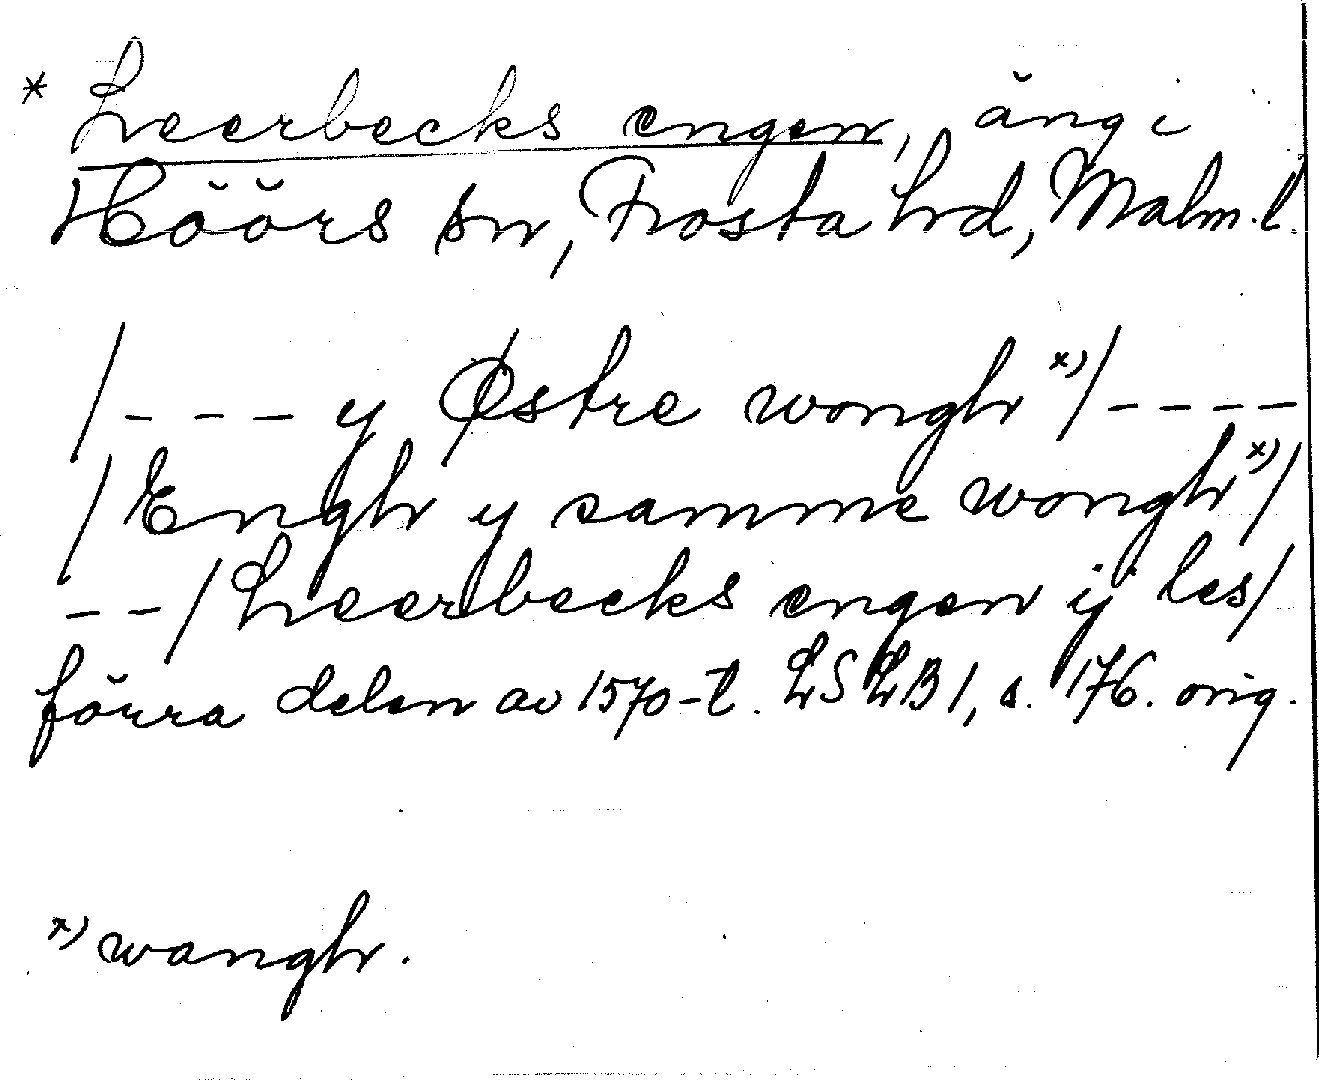 * Leerbecks engen, äng i
Höörs sn, Frosta hrd, Malm. l.
/--- y Østre wongh *)/----
/Engh y samme wongh *)/
--/Leerbecks engen ij les/
förra delen av 1570-t. LSLB 1, s. 176. orig.
*) wangh.